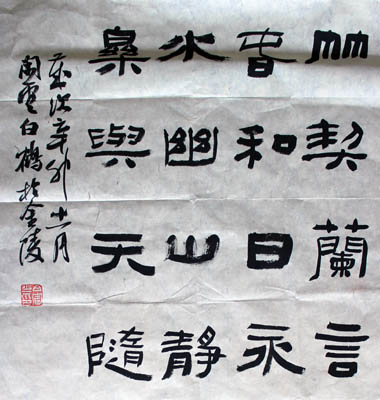 竹契蘭言
春和日永
水幽山靜
與天隨
歲次辛卯十一月
閑雲白鶴於金陵